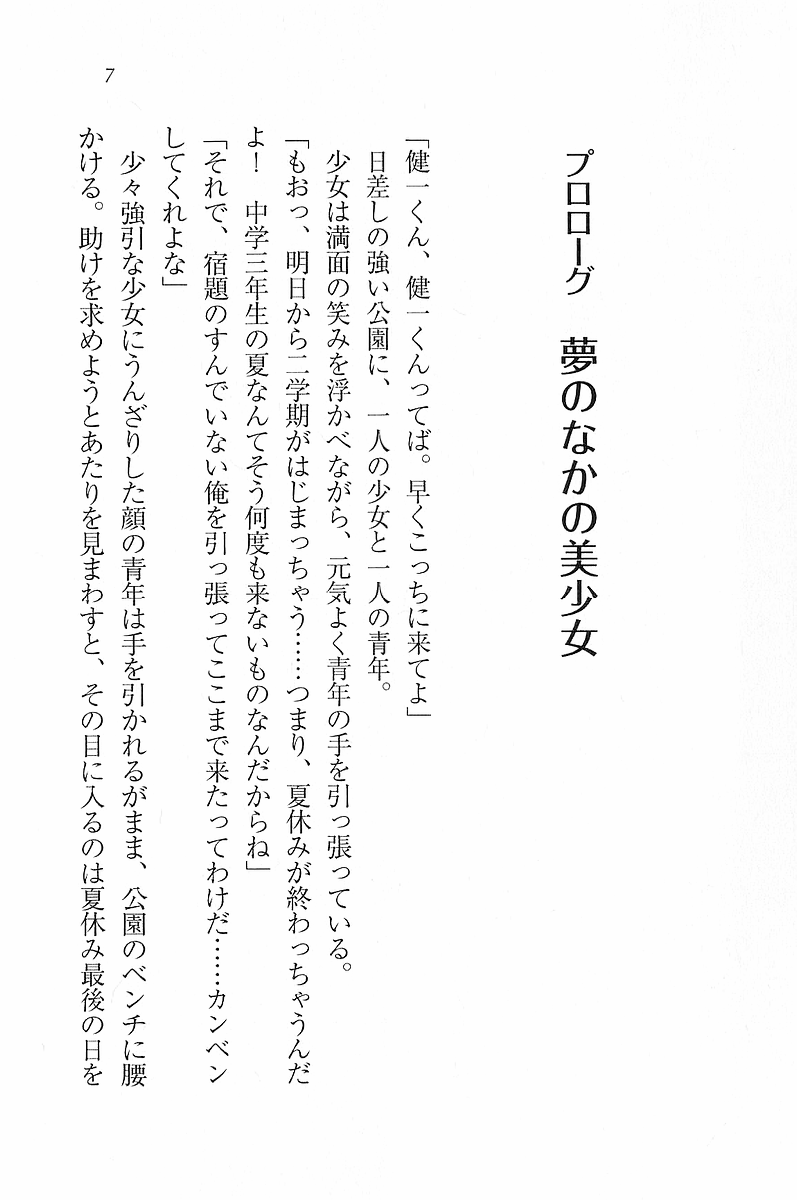 7
プロローグ　夢のなかの美少女
「健一くん、健一くんってば。早くこっちに来てよ」
　日差しの強い公園に、一人の少女と一人の青年。
　少女は満面の笑みを浮かべながら、元気よく青年の手を引っ張っている。
「もおっ、明日から二学期がはじまっちゃう……つまり、夏休みが終わっちゃうんだ
よ！　中学三年生の夏なんてそう何度も来ないものなんだからね」
「それで、宿題のすんでいない俺を引っ張ってここまで来たってわけだ……カンベン
してくれよな」
　少々強引な少女にうんざりした顔の青年は手を引かれるがまま、公園のベンチに腰
かける。助けを求めようとあたりを見まわすと、その目に入るのは夏休み最後の日を